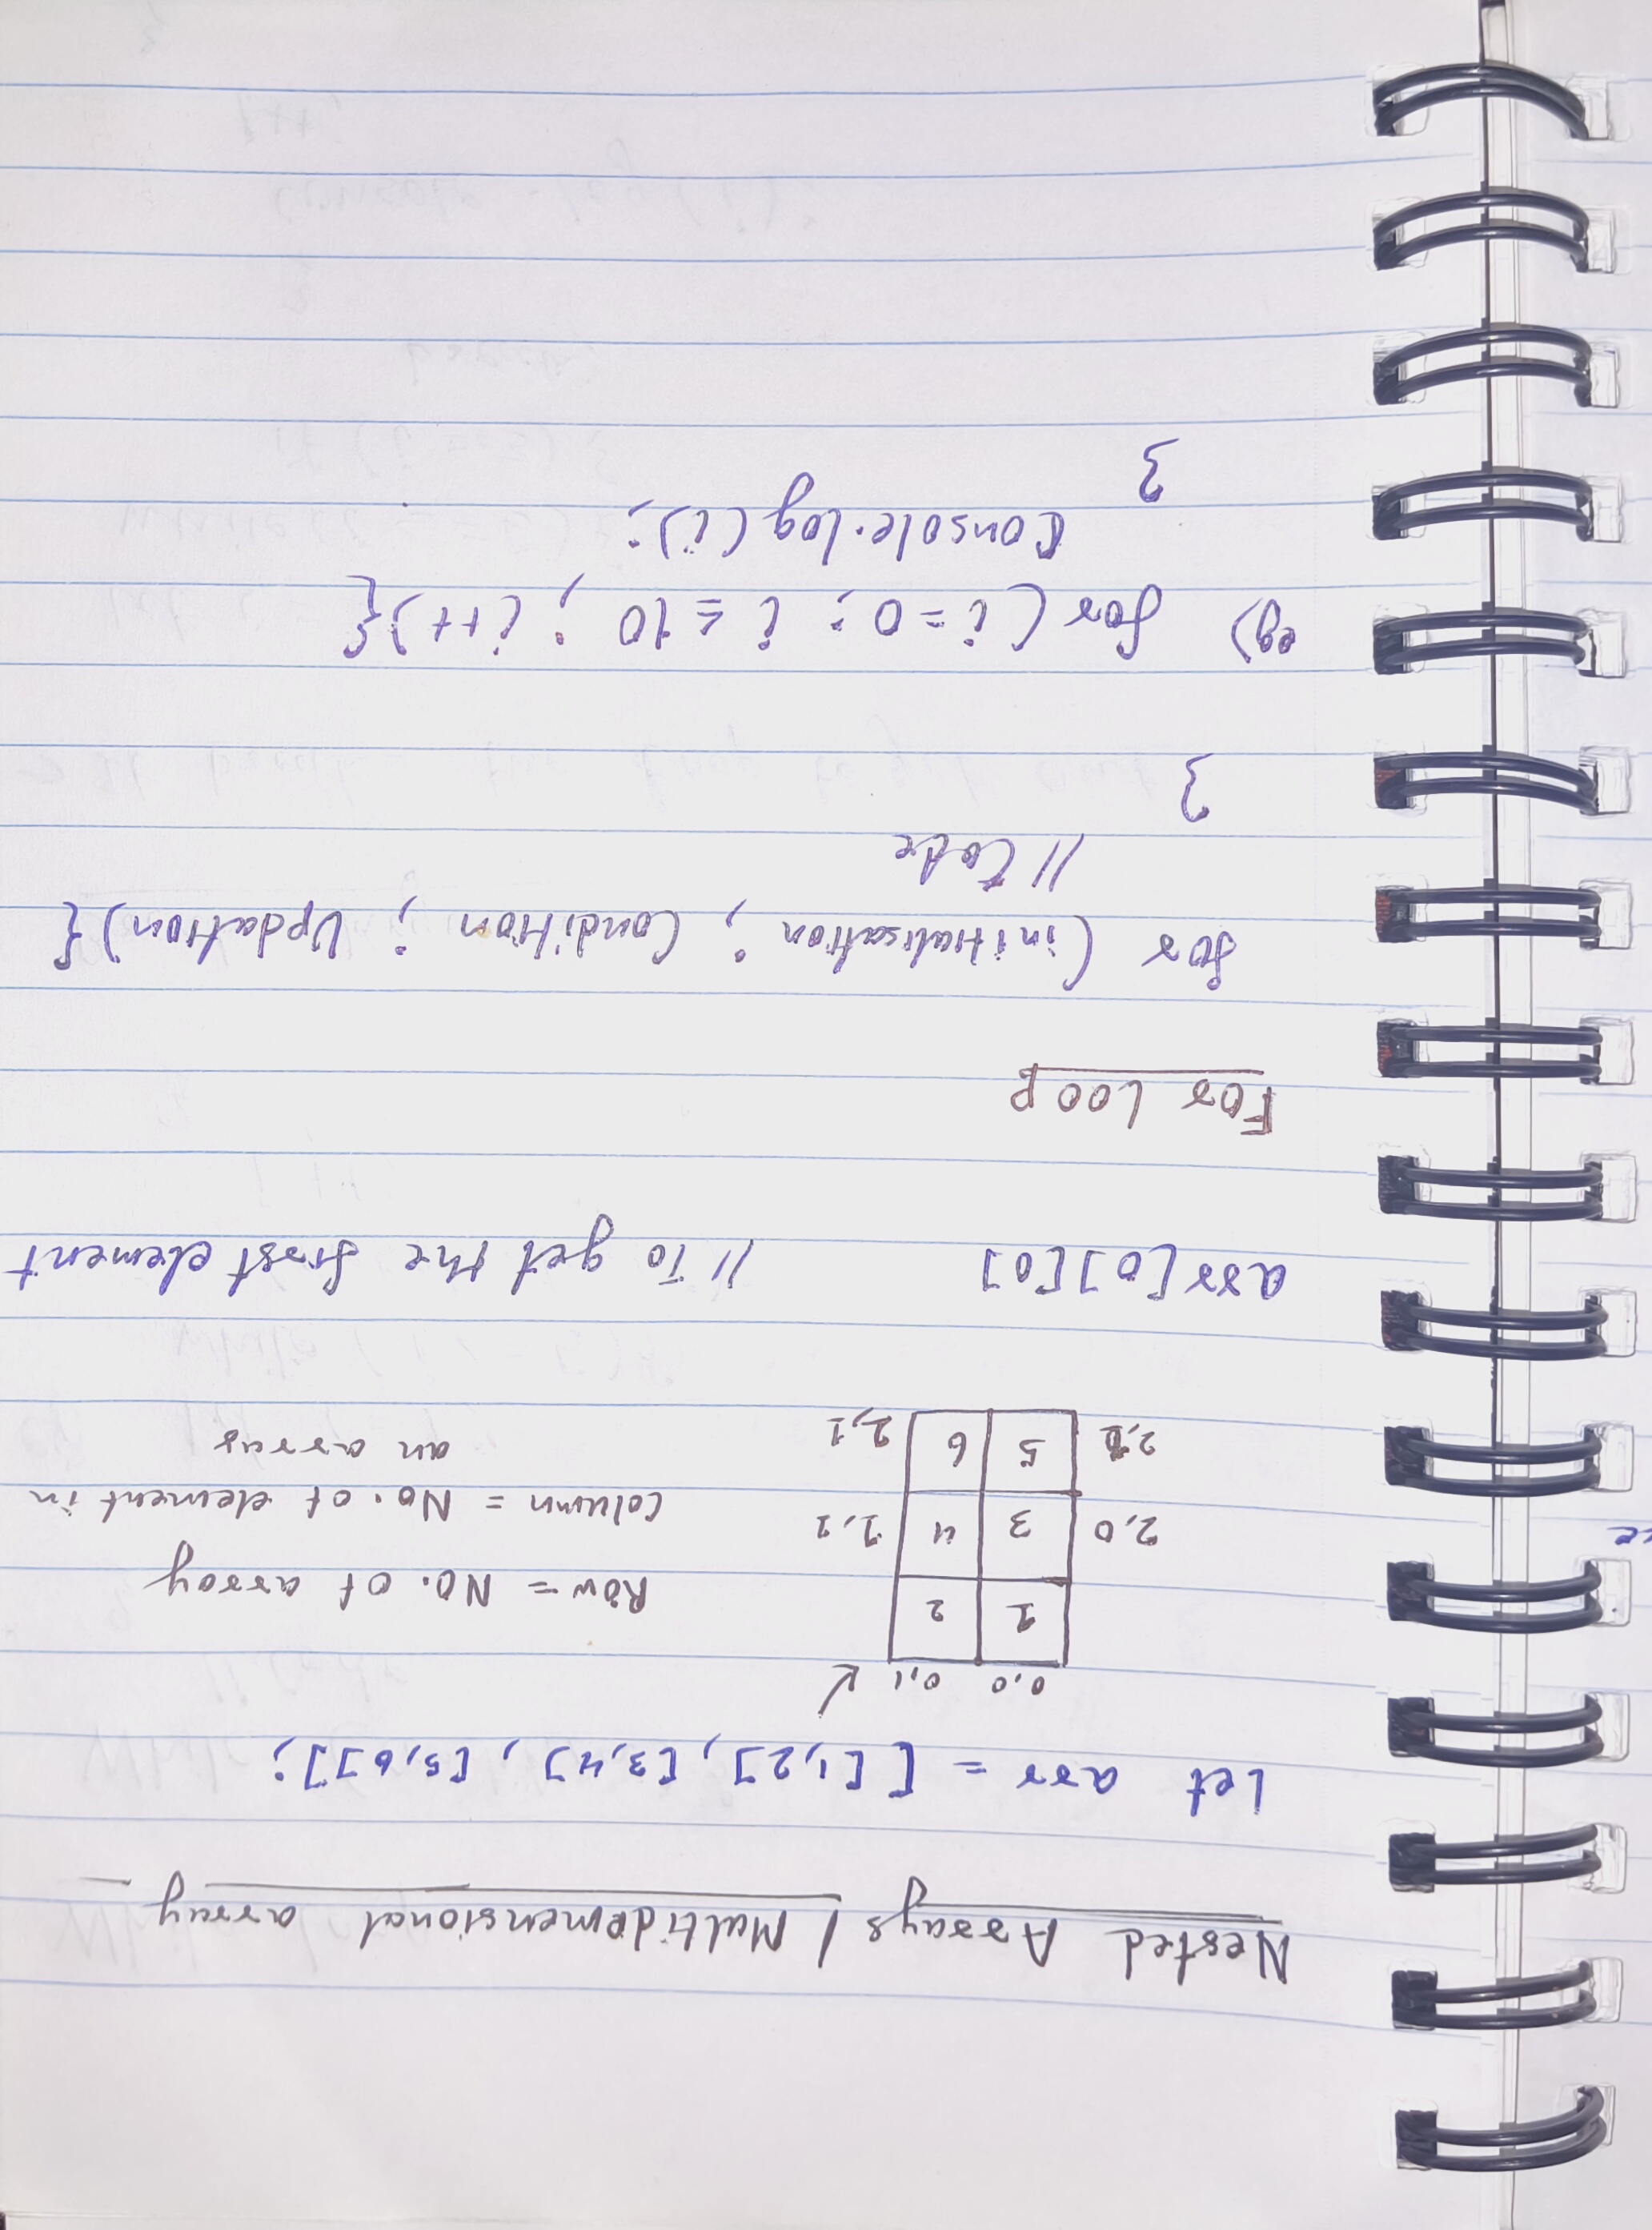 Nested Arrays / Multidemensional array
let arr = [ [1,2], [3,4] , [5,6]];
0,0 0,1
1 2
Row = NO. of array
2,0 3 4 1,1
Column = No. of element in
an array
5 6 2,1
arr[0][0] // To get the first element
For loop
for (initialisation ; Condition ; Updation) {
// Code
}
eg) for ( i = 0 ; i ≤ 10 ; i++){
Console.log(i);
}